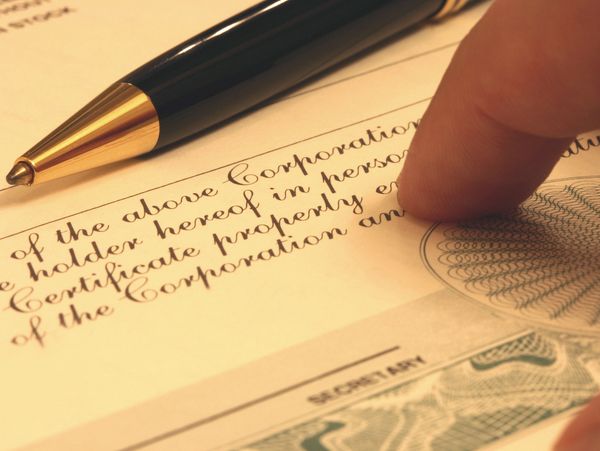 STOCK
of the above Corporation
holder hereof in person
Certificate properly
of the Corporation an
SECRETARY